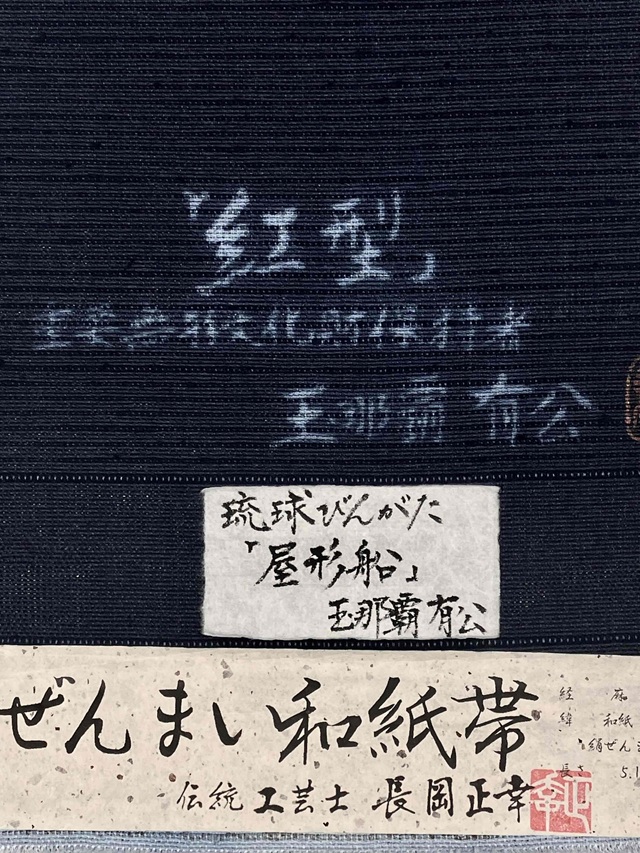 「紅型」
重要無形文化財保持者
玉那覇有公
琉球びんがた
「屋形船」
玉那覇有公
ぜんまい和紙帯
伝統工芸士 長岡正幸
経 麻
緯 和紙
絹ぜん
長さ 5.1